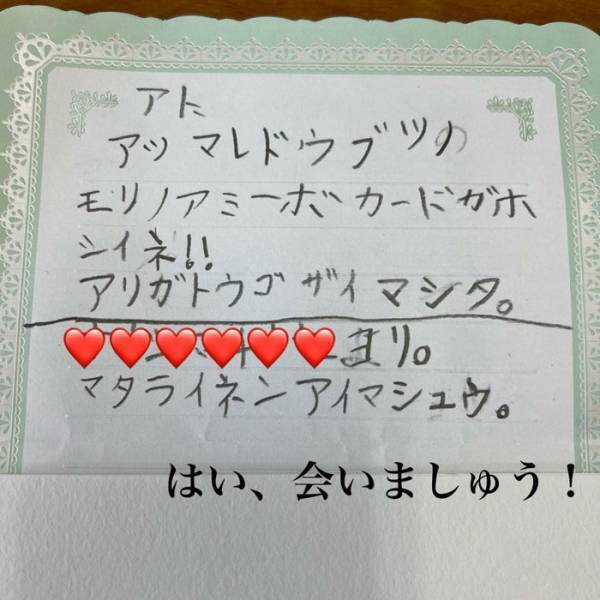 アト
アツマレドウブツの
モリノアミーボカードガホ
シイネ!!
アリガトウゴザイマシタ。
ヨリ。
マタライネンアイマシュウ。
はい、会いましゅう！